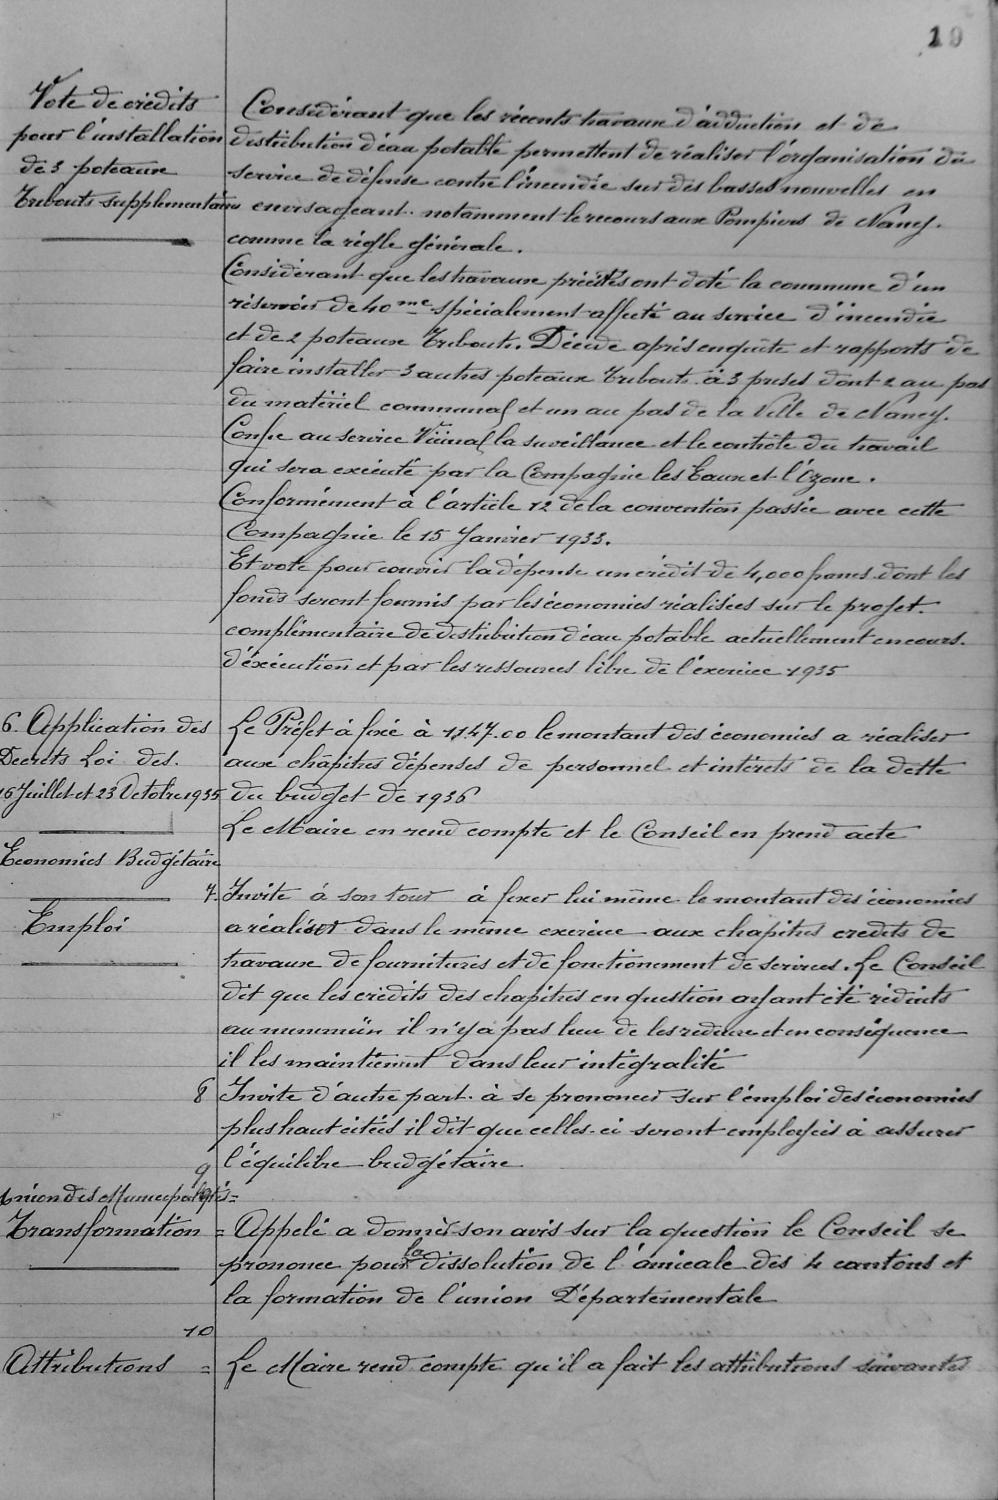 19
Vote de crédits
pour l'installation
de 3 poteaux
Tribouts supplémentaires
Considérant que les récents travaux d'adduction et de
distribution d'eau potable permettent de réaliser l'organisation du
service de défense contre l'incendie sur des basses nouvelles en
envisageant notamment le recours aux Pompiers de Nancy.
comme la règle générale.
Considérant que les travaux précités ont doté la commune d'un
réservoir de 40 me spécialement affecté au service d'incendie
et de 2 poteaux Tribouts. Décide après enquête et rapports de
faire installer 3 autres poteaux Tribouts à 3 prises dont 2 au pas
du matériel communal et un au pas de la Ville de Nancy.
Confie au service Vicinal la surveillance et le contrôle du travail
qui sera exécuté par la Compagnie les Eaux et l'Ozone.
Conformément à l'article 12 de la convention passée avec cette
Compagnie le 15 Janvier 1933.
Et vote pour couvrir la dépense un crédit de 4,000 francs dont les
fonds seront fournis par les économies réalisées sur le projet.
complémentaire de distribution d'eau potable actuellement en cours.
d'exécution et par les ressources libre de l'exercice 1935
6. Application des
Decrets Loi des.
16 Juillet et 23 Octobre 1935
Economies Budgétaire
Le Préfet à fixé à 1147.00 le montant des économies a réaliser
aux chapitres dépenses de personnel et intérets de la dette
du budget de 1936
Le Maire en rend compte et le Conseil en prend acte
Emploi
7. Invité à son tour à fixer lui même le montant des économies
a réaliser dans le même exercice aux chapitres credits de
travaux de fournitures et de fonctionement de services. Le Conseil
dit que les crédits des chapitres en question ayant été réduits
au minimum il n'y a pas lieu de les réduire et en conséquence
il les maintient dans leur intégralité
8 Invité d'autre part. à se prononcer sur l'emploi des économies
plus haut citées il dit que celles-ci seront employées à assurer
l'équilibre budgétaire
9
Union des Municipalités =
Transformation = Appelé a donner son avis sur la question le Conseil se
prononce pour la dissolution de l'amicale des 4 cantons et
la formation de l'union Départementale
10
Attributions = Le Maire rend compte qu'il a fait les attributions suivantes